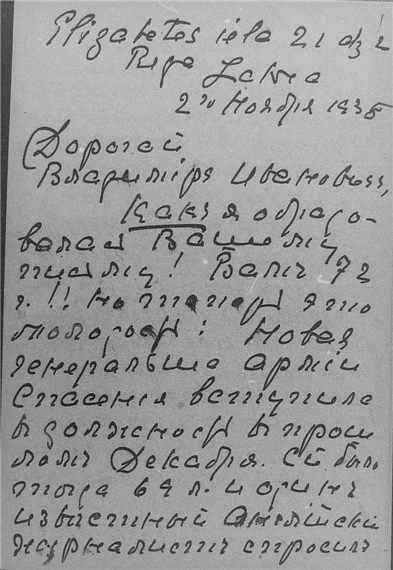 Elizabetes iela 21 dz 2
Riga Latvia
2го Ноября 1935
Дорогой
Владимiръ Ивановичъ,
Какъ я обрадо-
валась Вашему
письму! Вамъ 72
г.!! Но теперь это
молодость! Новая
генеральша Армiи
Спасенiя вступила
въ должность въ прош
ломъ Декабрѣ. Ей было
тогда 69 л. и одинъ
извѣстный Англiйскiй
журналистъ спросилъ